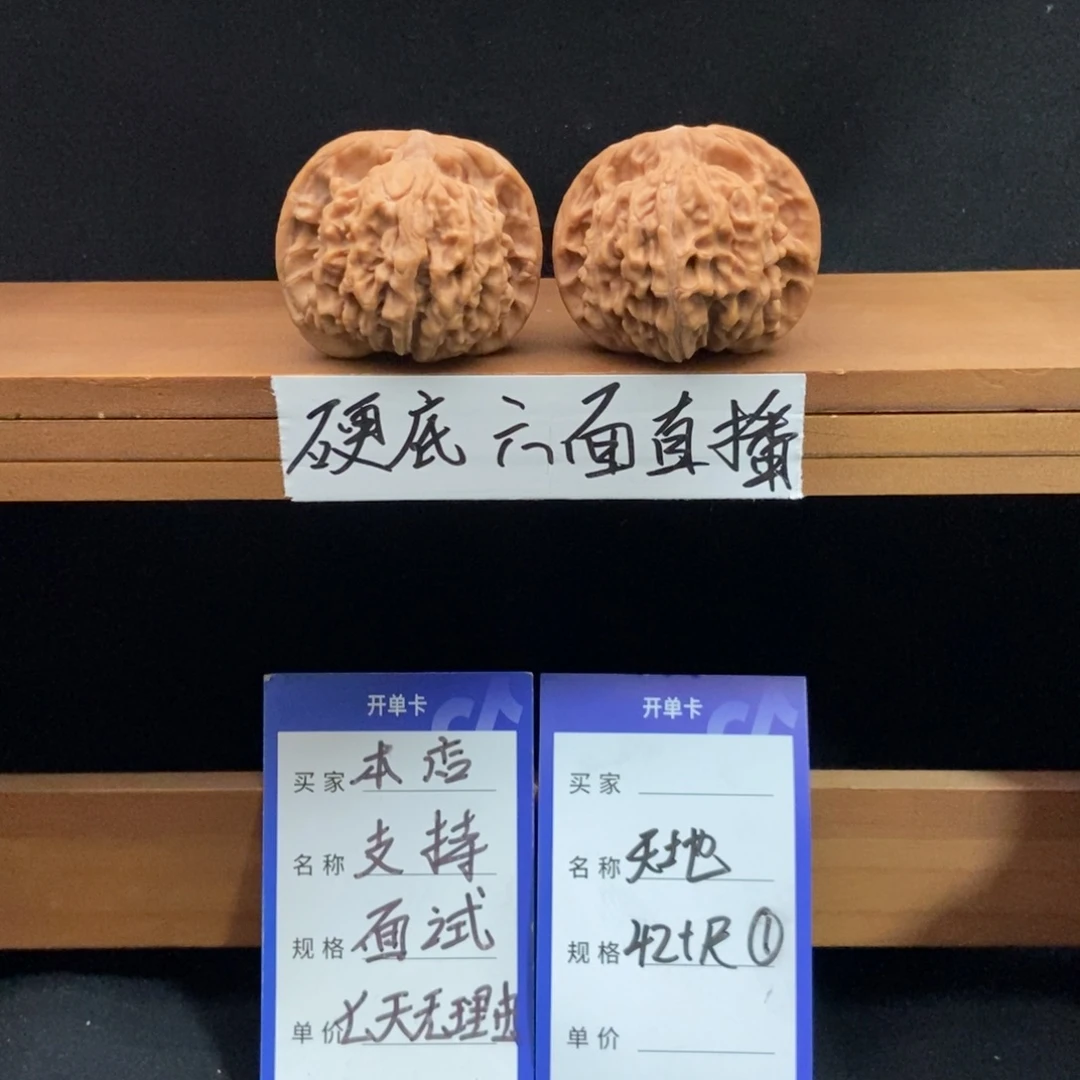 硬底 六面直播
开单卡
买家 本店
名称 支持
规格 面试
单价 七天无理由
开单卡
买家
名称 天地
规格 42+R ①
单价